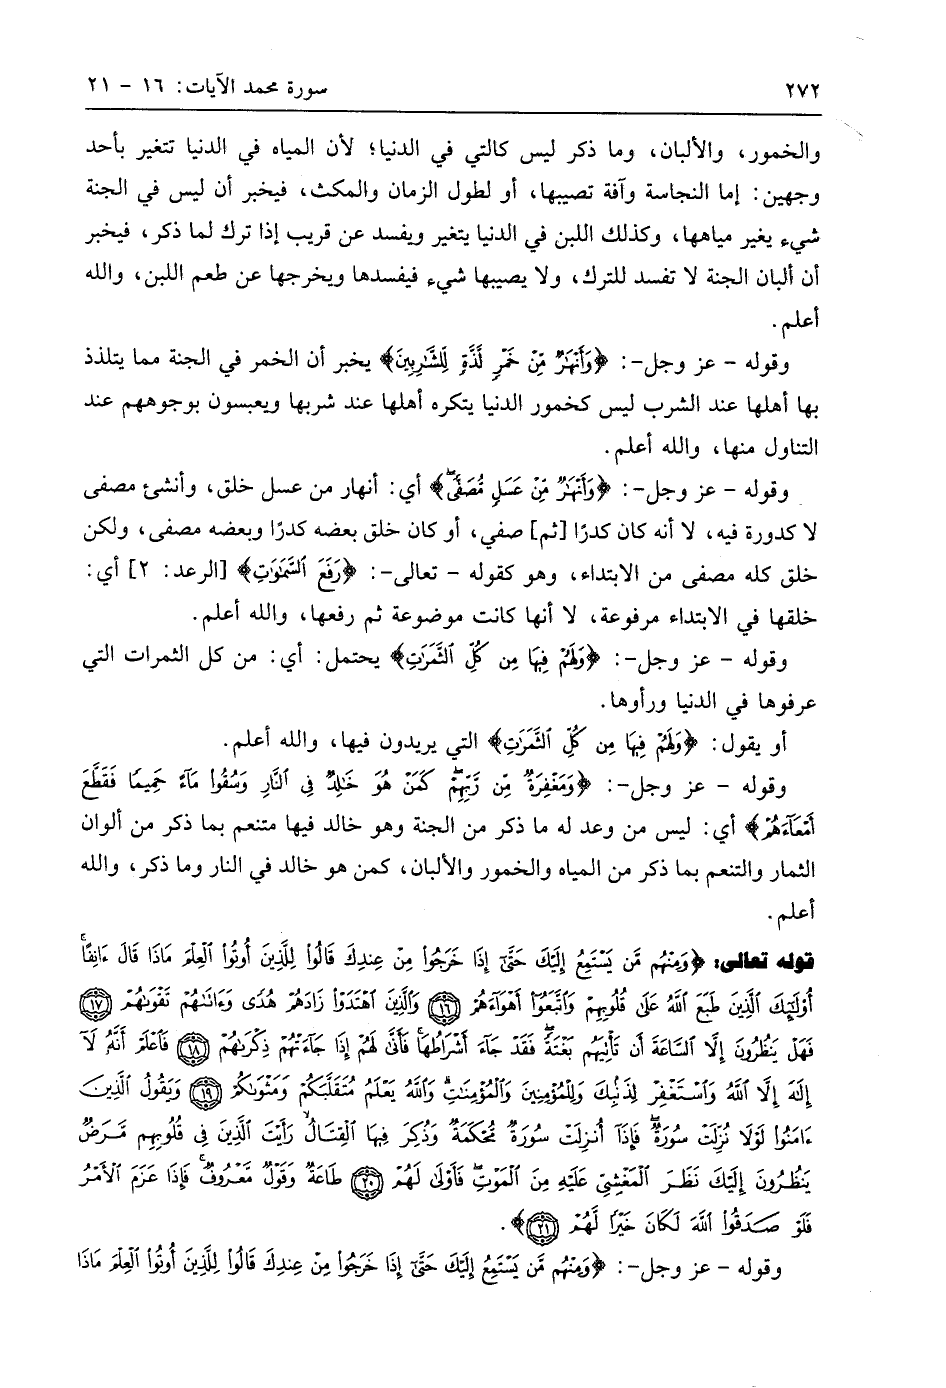 ٢٧٢ سورة محمد الآيات: ١٦ - ٢١
والخمور، والألبان، وما ذكر ليس كالتي في الدنيا؛ لأن المياه في الدنيا تتغير بأحد
وجهين: إما النجاسة وآفة تصيبها، أو لطول الزمان والمكث، فيخبر أن ليس في الجنة
شيء يغير مياهها، وكذلك اللبن في الدنيا يتغير ويفسد عن قريب إذا ترك لما ذكر، فيخبر
أن ألبان الجنة لا تفسد للترك، ولا يصيبها شيء فيفسدها ويخرجها عن طعم اللبن، والله
أعلم.
وقوله - عز وجل-: ﴿وَأَنْهَٰرٌ مِّنْ خَمْرٍ لَّذَّةٍ لِّلشَّٰرِبِينَ﴾ يخبر أن الخمر في الجنة مما يتلذذ
بها أهلها عند الشرب ليس كخمور الدنيا يتكره أهلها عند شربها ويعبسون بوجوههم عند
التناول منها، والله أعلم.
وقوله - عز وجل-: ﴿وَأَنْهَٰرٌ مِّنْ عَسَلٍ مُّصَفًّىۖ﴾ أي: أنهار من عسل خلق، وأنشئ مصفى
لا كدورة فيه، لا أنه كان كدرًا [ثم] صفي، أو كان خلق بعضه كدرًا وبعضه مصفى، ولكن
خلق كله مصفى من الابتداء، وهو كقوله - تعالى-: ﴿رَفَعَ ٱلسَّمَٰوَٰتِ﴾ [الرعد: ٢] أي:
خلقها في الابتداء مرفوعة، لا أنها كانت موضوعة ثم رفعها، والله أعلم.
وقوله - عز وجل-: ﴿وَلَهُمْ فِيهَا مِن كُلِّ ٱلثَّمَرَٰتِ﴾ يحتمل: أي: من كل الثمرات التي
عرفوها في الدنيا ورأوها.
أو يقول: ﴿وَلَهُمْ فِيهَا مِن كُلِّ ٱلثَّمَرَٰتِ﴾ التي يريدون فيها، والله أعلم.
وقوله - عز وجل-: ﴿وَمَغْفِرَةٌ مِّن رَّبِّهِمْۖ كَمَنْ هُوَ خَٰلِدٌ فِى ٱلنَّارِ وَسُقُوا۟ مَآءً حَمِيمًا فَقَطَّعَ
أَمْعَآءَهُمْ﴾ أي: ليس من وعد له ما ذكر من الجنة وهو خالد فيها متنعم بما ذكر من ألوان
الثمار والتنعم بما ذكر من المياه والخمور والألبان، كمن هو خالد في النار وما ذكر، والله
أعلم.
قوله تعالى: ﴿وَمِنْهُم مَّن يَسْتَمِعُ إِلَيْكَ حَتَّىٰٓ إِذَا خَرَجُوا۟ مِنْ عِندِكَ قَالُوا۟ لِلَّذِينَ أُوتُوا۟ ٱلْعِلْمَ مَاذَا قَالَ ءَانِفًاۚ
أُو۟لَٰٓئِكَ ٱلَّذِينَ طَبَعَ ٱللَّهُ عَلَىٰ قُلُوبِهِمْ وَٱتَّبَعُوٓا۟ أَهْوَآءَهُمْ ﴿١٦﴾ وَٱلَّذِينَ ٱهْتَدَوْا۟ زَادَهُمْ هُدًى وَءَاتَىٰهُمْ تَقْوَىٰهُمْ ﴿١٧﴾
فَهَلْ يَنظُرُونَ إِلَّا ٱلسَّاعَةَ أَن تَأْتِيَهُم بَغْتَةًۖ فَقَدْ جَآءَ أَشْرَاطُهَاۚ فَأَنَّىٰ لَهُمْ إِذَا جَآءَتْهُمْ ذِكْرَىٰهُمْ ﴿١٨﴾ فَٱعْلَمْ أَنَّهُۥ لَآ
إِلَٰهَ إِلَّا ٱللَّهُ وَٱسْتَغْفِرْ لِذَنۢبِكَ وَلِلْمُؤْمِنِينَ وَٱلْمُؤْمِنَٰتِۗ وَٱللَّهُ يَعْلَمُ مُتَقَلَّبَكُمْ وَمَثْوَىٰكُمْ ﴿١٩﴾ وَيَقُولُ ٱلَّذِينَ
ءَامَنُوا۟ لَوْلَا نُزِّلَتْ سُورَةٌۖ فَإِذَآ أُنزِلَتْ سُورَةٌ مُّحْكَمَةٌ وَذُكِرَ فِيهَا ٱلْقِتَالُۙ رَأَيْتَ ٱلَّذِينَ فِى قُلُوبِهِم مَّرَضٌ
يَنظُرُونَ إِلَيْكَ نَظَرَ ٱلْمَغْشِىِّ عَلَيْهِ مِنَ ٱلْمَوْتِۖ فَأَوْلَىٰ لَهُمْ ﴿٢٠﴾ طَاعَةٌ وَقَوْلٌ مَّعْرُوفٌۚ فَإِذَا عَزَمَ ٱلْأَمْرُ
فَلَوْ صَدَقُوا۟ ٱللَّهَ لَكَانَ خَيْرًا لَّهُمْ ﴿٢١﴾﴾.
وقوله - عز وجل-: ﴿وَمِنْهُم مَّن يَسْتَمِعُ إِلَيْكَ حَتَّىٰٓ إِذَا خَرَجُوا۟ مِنْ عِندِكَ قَالُوا۟ لِلَّذِينَ أُوتُوا۟ ٱلْعِلْمَ مَاذَا